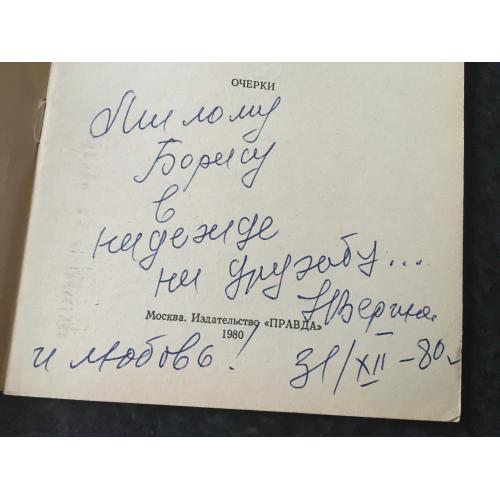 ОЧЕРКИ
Милому
Борису
в
надежде
на дружбу...
Москва. Издательство «ПРАВДА»
1980
и любовь!
31/XII-80г.